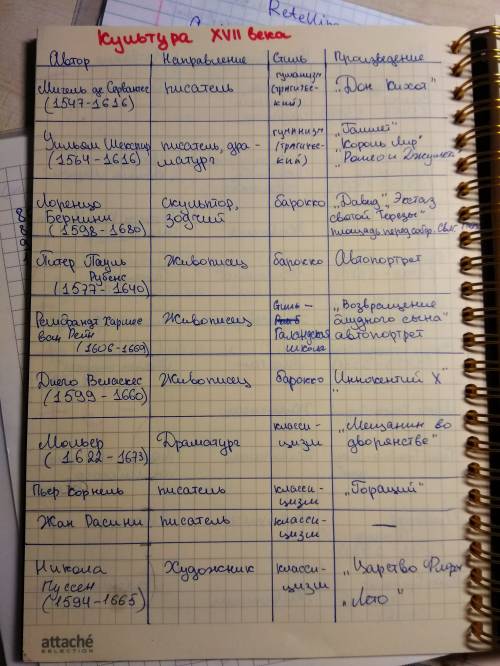 Retelling
Культура XVII века
Автор Направление Стиль Произведение
Мигель де Сервантес писатель гуманизм "Дон Кихот"
(1547-1616) (трагичес-
кий)
Уильям Шекспир писатель, дра- гуманизм "Гамлет"
(1564-1616) матург (трагичес- "Король Лир"
кий) "Ромео и Джульет."
Лоренцо Скульптор, барокко "Давид", "Экстаз
Бернини зодчий святой Терезы"
(1598-1680) площадь перед собр. Свт.
Питер Пауль Живописец барокко Автопортрет
Рубенс
(1577-1640)
Рембрандт Харменс Живописец Стиль - "Возвращение
ван Рейн Галандская блудного сына"
(1606-1669) школа автопортрет
Диего Веласкес Живописец барокко Иннокентий X"
(1599-1660)
Мольер Драматург класси- "Мещанин во
(1622-1673) цизм дворянстве"
Пьер Корнель писатель класси- "Гораций"
цизм
Жан Расини писатель класси- —
цизм
Никола Художник класси- "Царство Флоры
Пуссен цизм "Лето"
(1594-1665)
attaché
SELECTION